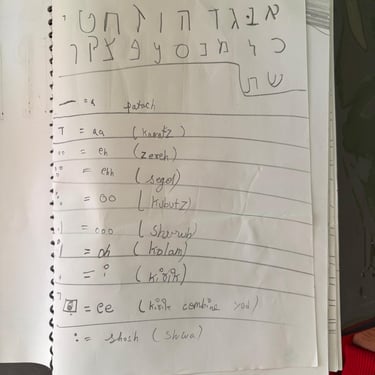 א ב ג ד ה ו ז ח ט י
כ ל מ נ ס ע פ צ ק ר
ש ת
— = a patach
= aa (Kamatz)
.. = eh (zereh)
= ehh (segol)
= oo (Kubutz)
= ooo (Shuruh)
= oh (Kolam)
. = i (Kirik)
= ee (Kirik combine yod)
: = shosh (Shiwa)